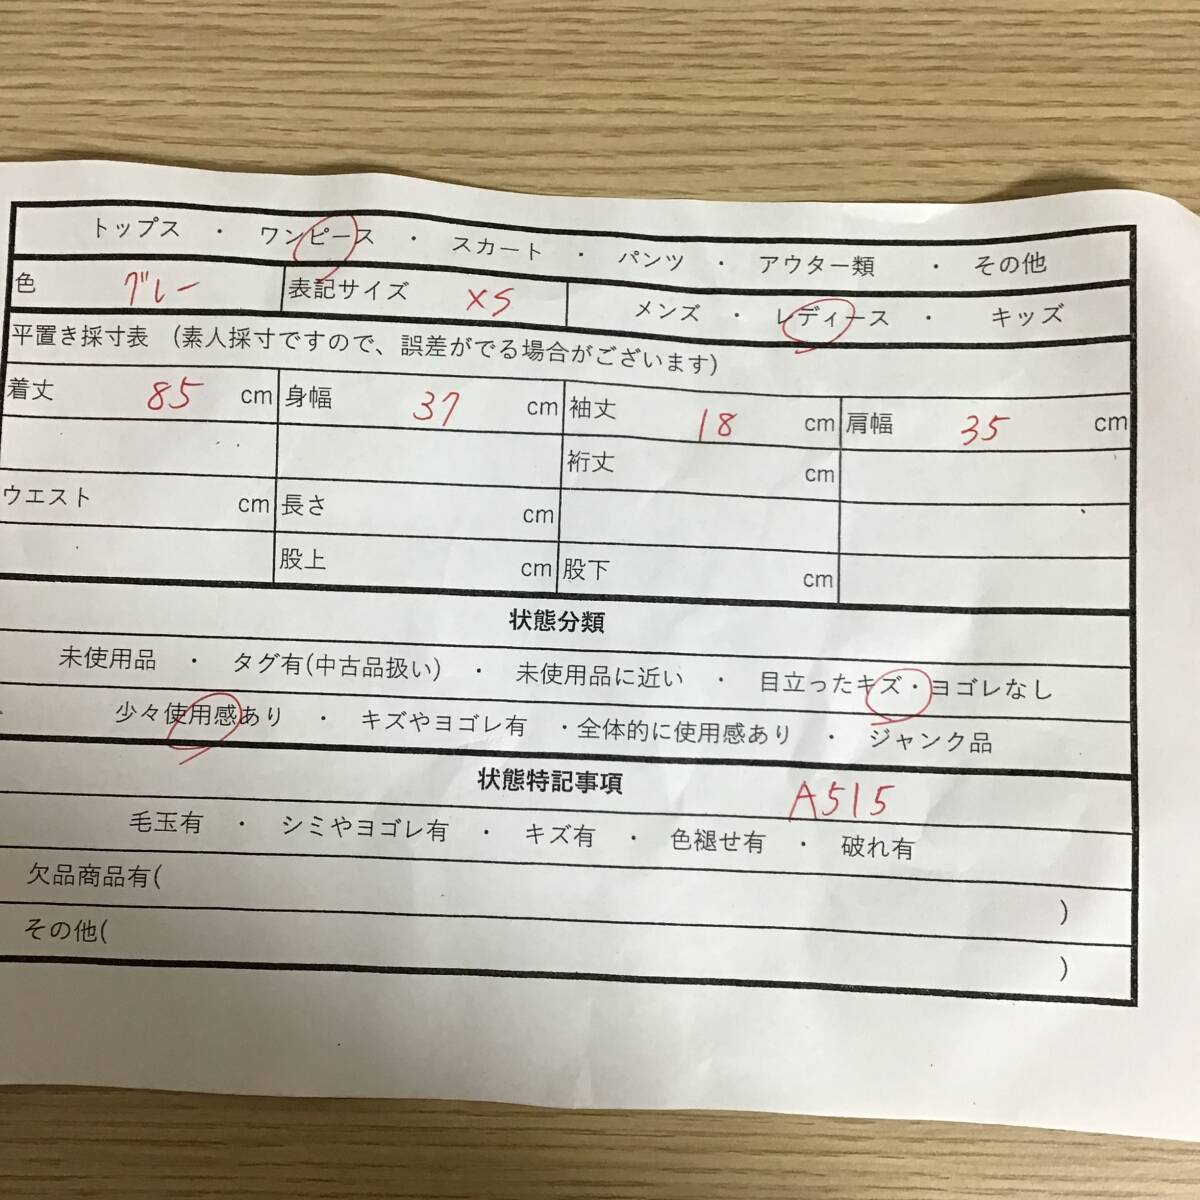 トップス ・ ワンピース ・ スカート ・ パンツ ・ アウター類 ・ その他
色 グレー 表記サイズ XS メンズ ・ レディース ・ キッズ
平置き採寸表 (素人採寸ですので、誤差がでる場合がございます)
着丈 85 cm 身幅 37 cm 袖丈 18 cm 肩幅 35 cm
裄丈 cm
ウエスト cm 長さ cm
股上 cm 股下 cm
状態分類
未使用品 ・ タグ有(中古品扱い) ・ 未使用品に近い ・ 目立ったキズ・ヨゴレなし
少々使用感あり ・ キズやヨゴレ有 ・全体的に使用感あり ・ ジャンク品
状態特記事項 A515
毛玉有 ・ シミやヨゴレ有 ・ キズ有 ・ 色褪せ有 ・ 破れ有
欠品商品有( )
その他( )